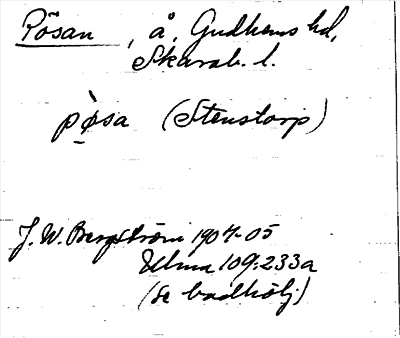 Pösan, å, Gudhems hd,
Skarab. l.
pø̀sa (Stenstorp)
J. W. Bergström 1904-05
Ulma 109:233a
(se badhölj)